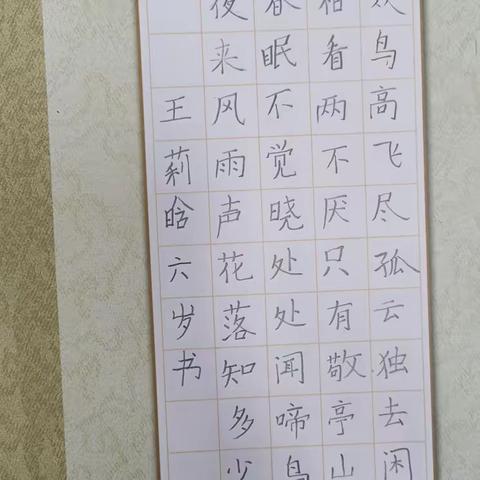 鸟高飞尽孤云独去闲
相看两不厌只有敬亭山
春眠不觉晓处处闻啼鸟
夜来风雨声花落知多少
王莉晗六岁书